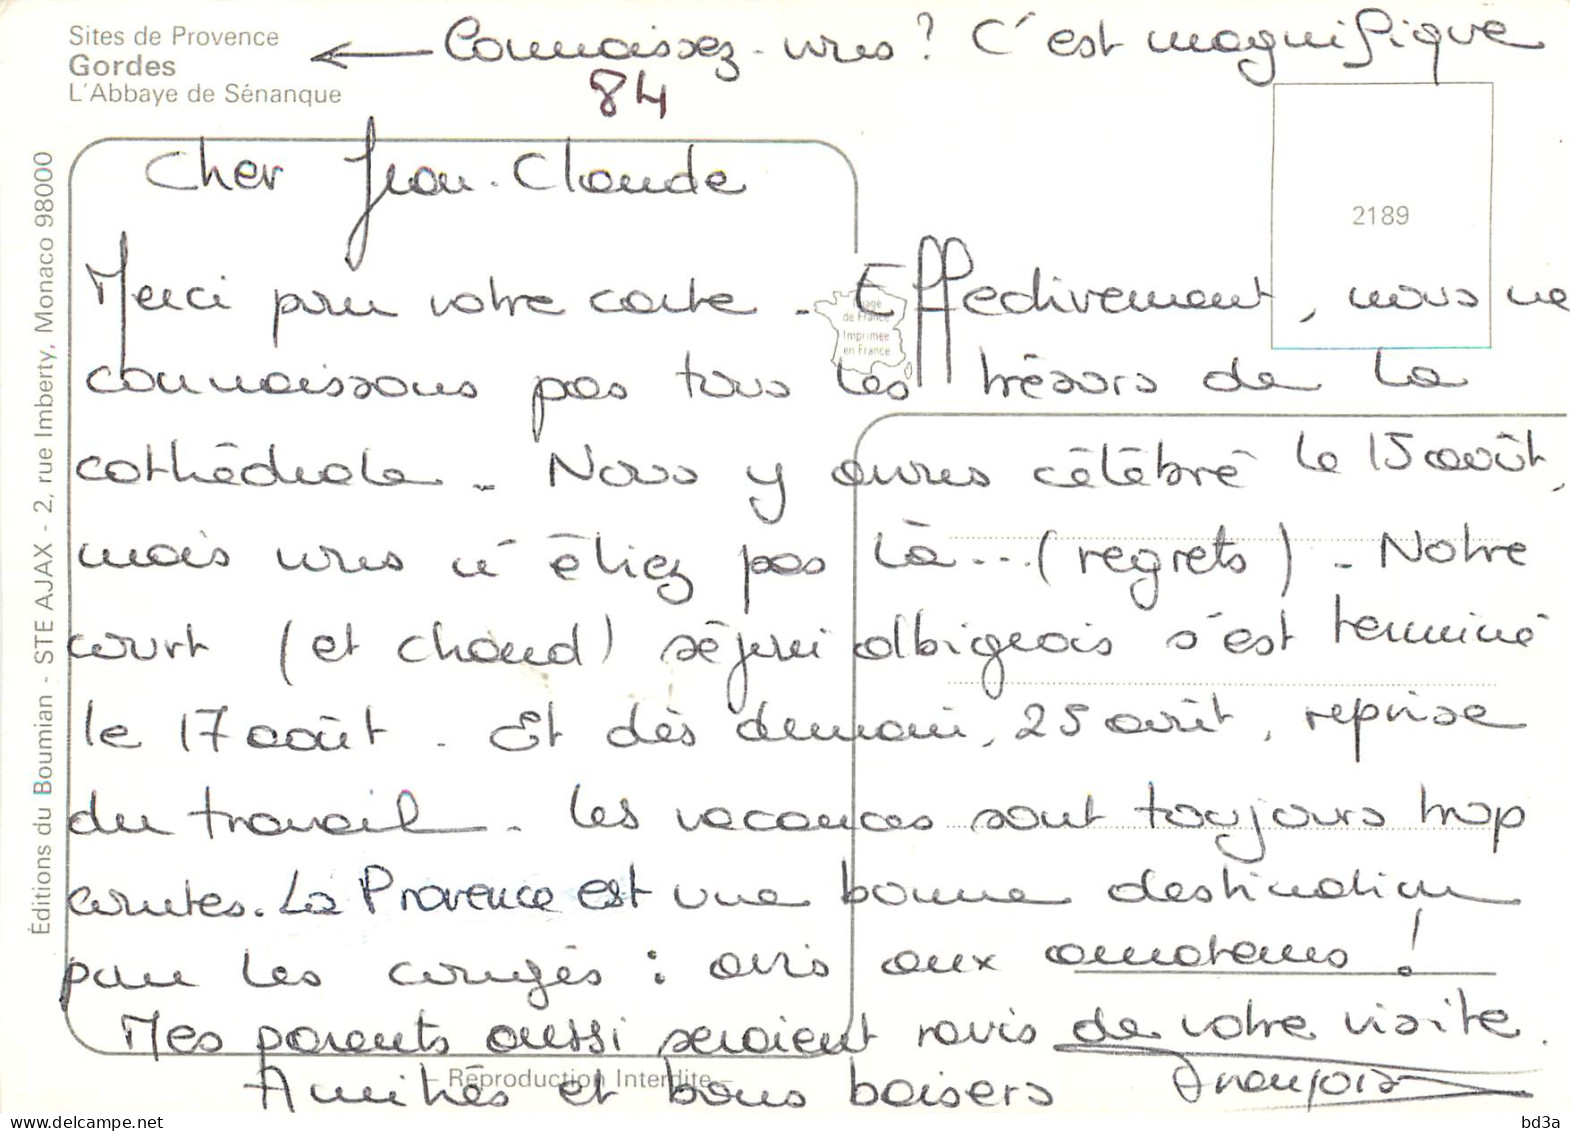 Sites de Provence
Gordes
L'Abbaye de Sénanque
← Connaissez-vous ? C'est magnifique
84
Cher Jean-Claude
2189
Merci pour votre carte. Effectivement, nous ne
Image
de France
Imprimée
en France
connaissons pas tous les trésors de la
cathédrale. Nous y avons célébré le 15 août,
mais vous n'étiez pas là... (regrets). Notre
court (et chaud) séjour albigeois s'est terminé
le 17 août. Et dès demain, 25 août, reprise
du travail. Les vacances sont toujours trop
courtes. La Provence est une bonne destination
pour les congés : avis aux amateurs !
Mes parents aussi seraient ravis de votre visite.
Amitiés et bons baisers François
Reproduction Interdite
Éditions du Boumian - STE AJAX - 2, rue Imberty, Monaco 98000
bd3a